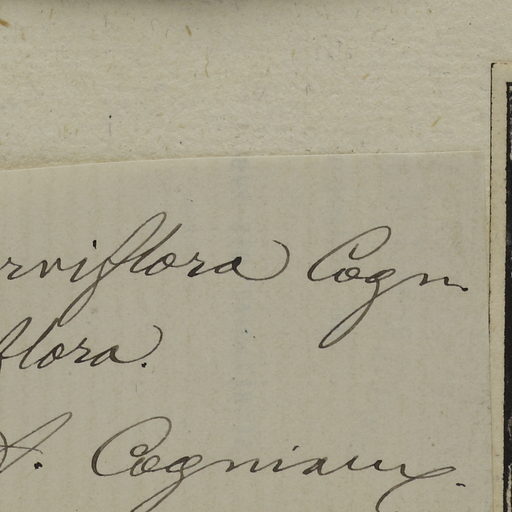 rviflora Cogn.
flora.
A. Cogniaux.